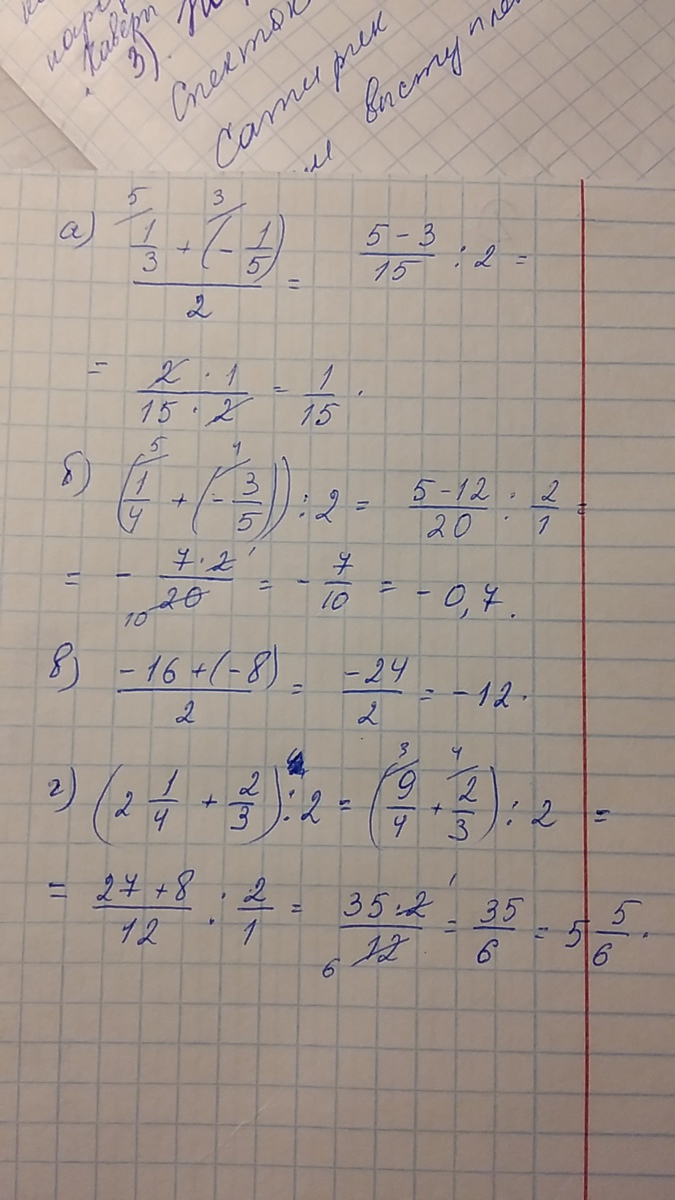 3).
Спектак
Сатирик
выступлен
а) ⁵⁄ 1/3 + ³⁄ (- 1/5) / 2 = (5-3)/15 : 2 =
= (2 · 1)/(15 · 2) = 1/15.
б) (⁵⁄ 1/4 + ⁴⁄ (- 3/5)) : 2 = (5-12)/20 : 2/1 =
= - (7·2 ¹)/(10 20) = - 7/10 = - 0,7.
в) (-16+(-8))/2 = -24/2 = -12.
г) (2 1/4 + 2/3) : 2 = (³⁄ 9/4 + ⁴⁄ 2/3) : 2 =
= (27+8)/12 : 2/1 = (35·2 ¹)/(6 12) = 35/6 = 5 5/6.